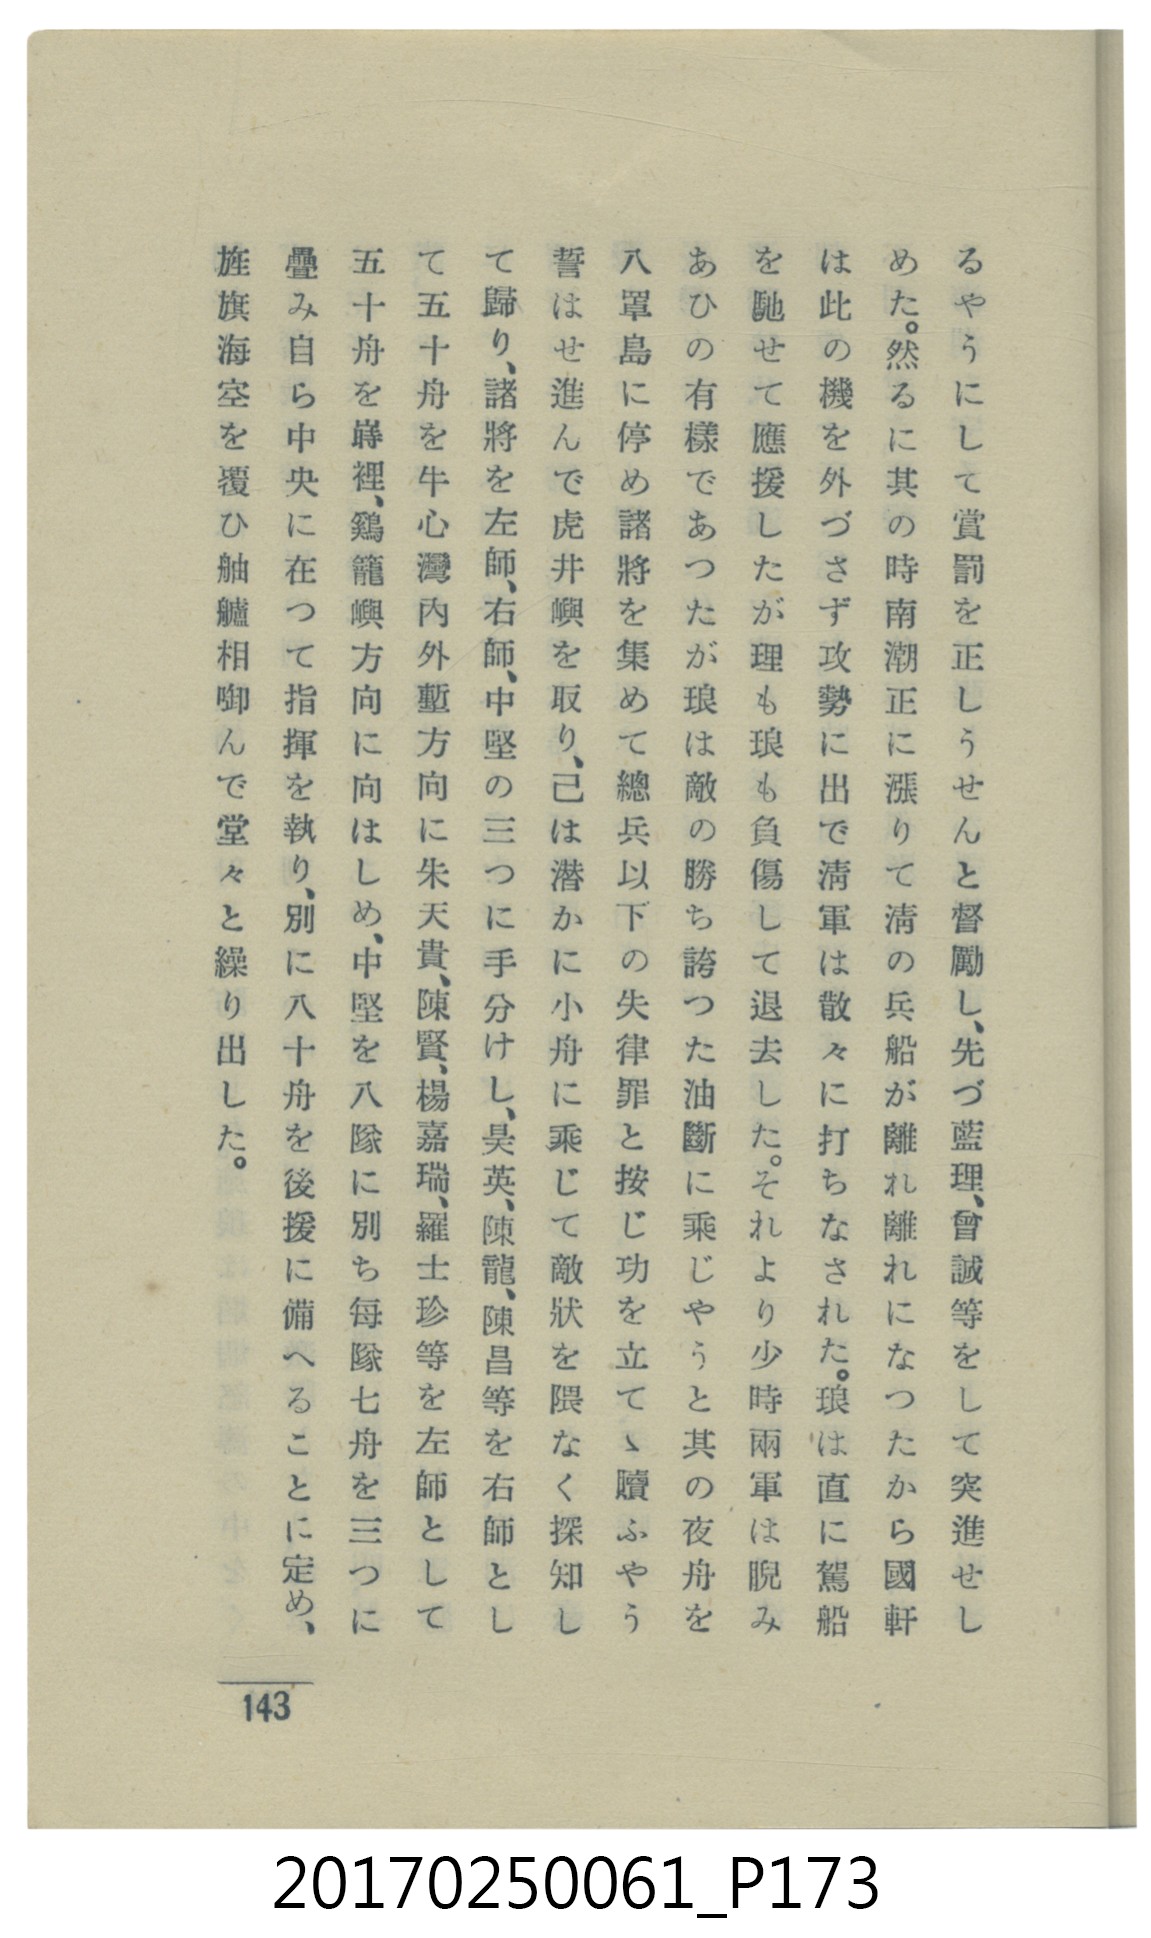 るやうにして賞罰を正しうせんと督勵し、先づ藍理、曾誠等をして突進せし
めた。然るに其の時南潮正に漲りて淸の兵船が離れ離れになつたから國軒
は此の機を外づさず攻勢に出で淸軍は散々に打ちなされた。琅は直に駕船
を馳せて應援したが理も琅も負傷して退去した。それより少時兩軍は睨み
あひの有樣であつたが琅は敵の勝ち誇つた油斷に乘じやうと其の夜舟を
八罩島に停め諸將を集めて總兵以下の失律罪と按じ功を立てゝ贖ふやう
誓はせ進んで虎井嶼を取り、己は潛かに小舟に乘じて敵狀を隈なく探知し
て歸り、諸將を左師、右師、中堅の三つに手分けし、吳英、陳龍、陳昌等を右師とし
て五十舟を牛心灣內外塹方向に朱天貴、陳賢、楊嘉瑞、羅士珍等を左師として
五十舟を嵵裡、鷄籠嶼方向に向はしめ、中堅を八隊に別ち每隊七舟を三つに
疊み自ら中央に在つて指揮を執り、別に八十舟を後援に備へることに定め、
旌旗海空を覆ひ舳艫相啣んで堂々と繰り出した。
143
20170250061_P173